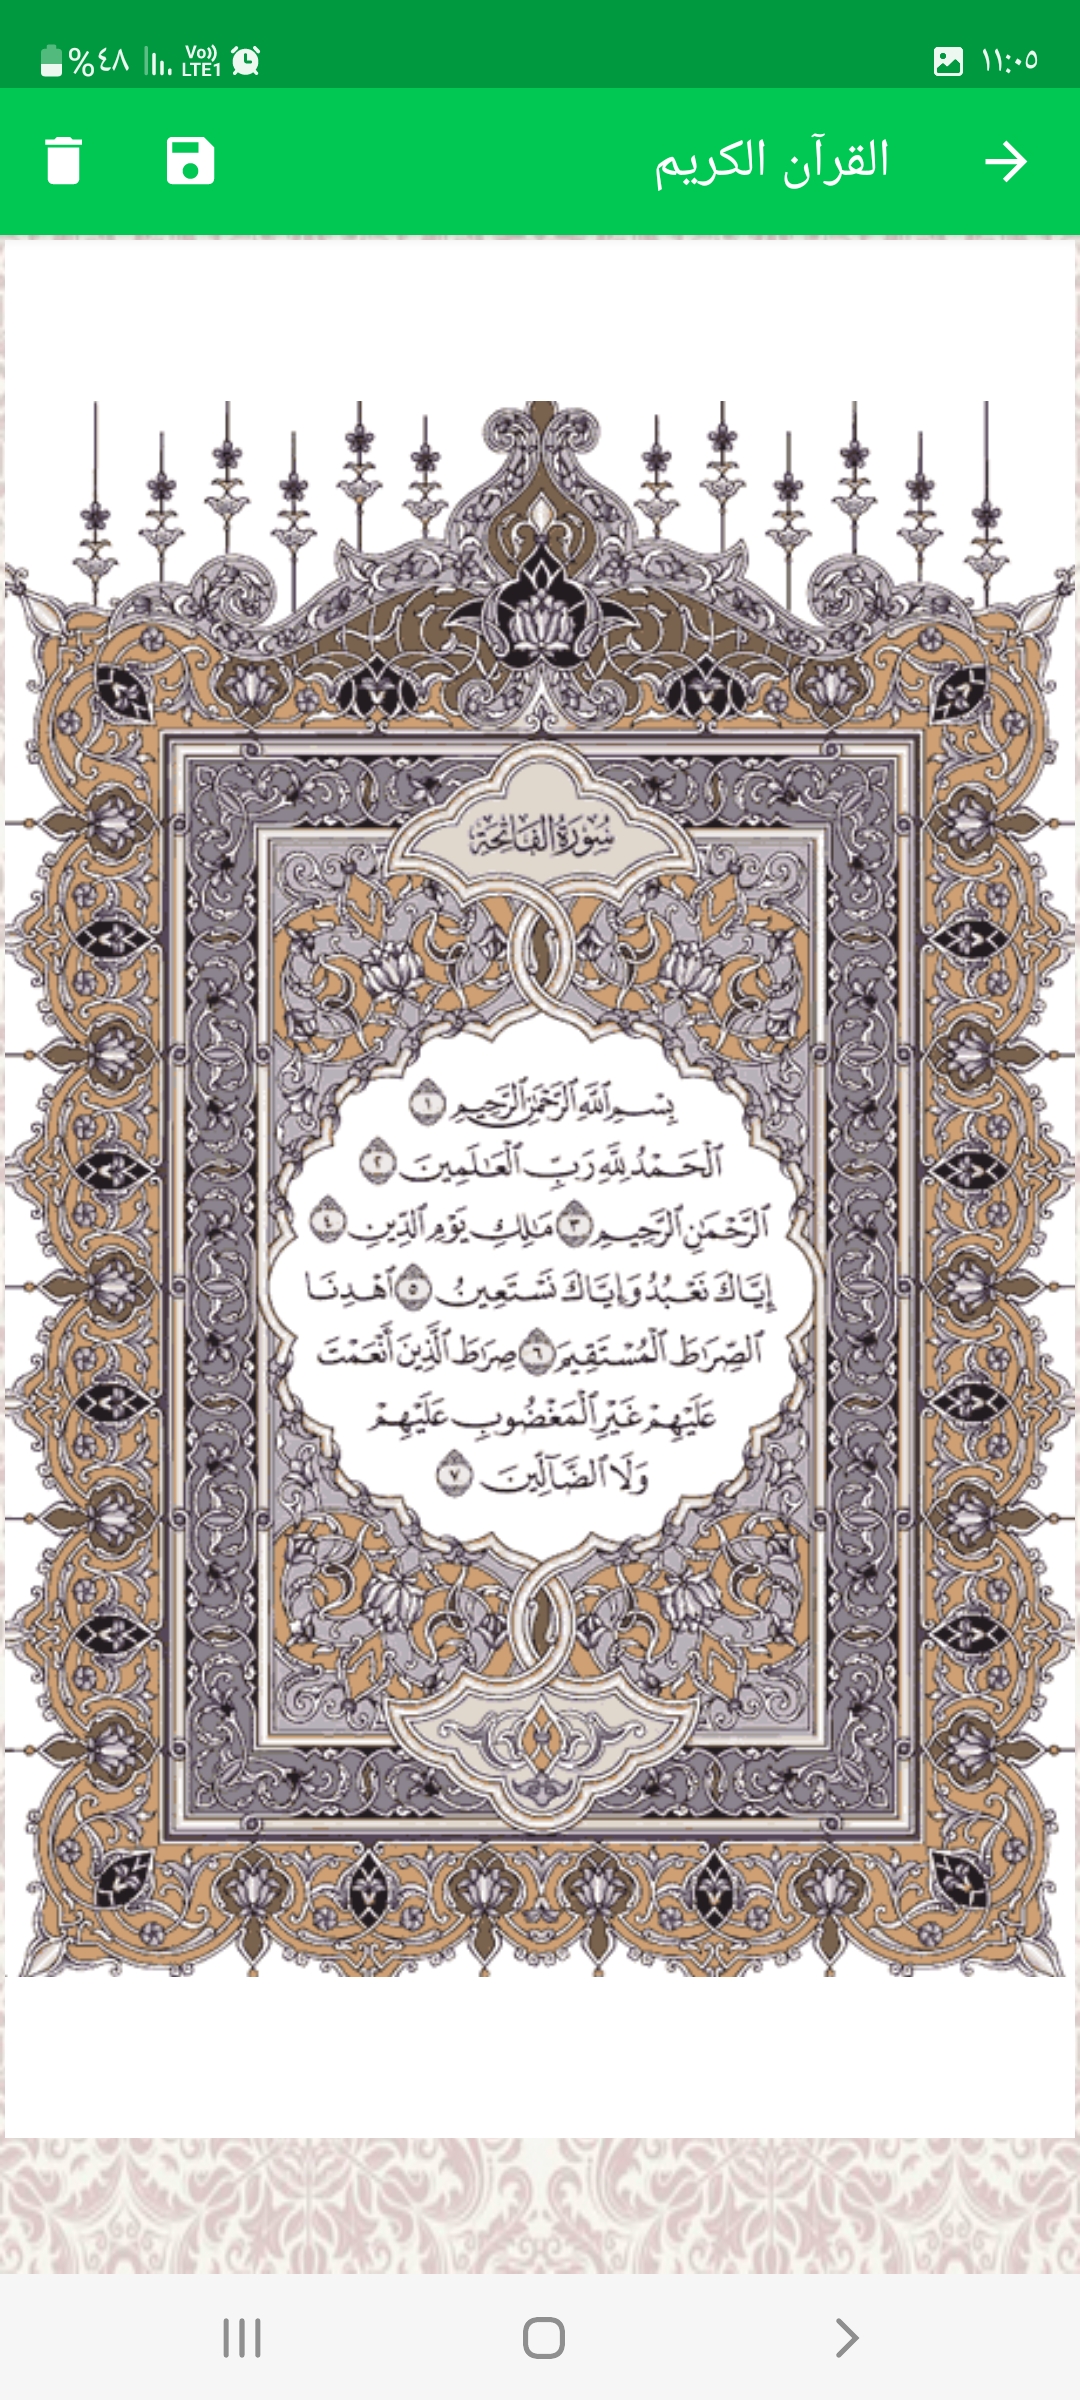 %٤٨ Vo)) LTE1 ١١:٠٥
القرآن الكريم
سُورَةُ الفَاتِحَة
بِسْمِ ٱللَّهِ ٱلرَّحْمَٰنِ ٱلرَّحِيمِ ١
ٱلْحَمْدُ لِلَّهِ رَبِّ ٱلْعَٰلَمِينَ ٢
ٱلرَّحْمَٰنِ ٱلرَّحِيمِ ٣ مَٰلِكِ يَوْمِ ٱلدِّينِ ٤
إِيَّاكَ نَعْبُدُ وَإِيَّاكَ نَسْتَعِينُ ٥ ٱهْدِنَا
ٱلصِّرَٰطَ ٱلْمُسْتَقِيمَ ٦ صِرَٰطَ ٱلَّذِينَ أَنْعَمْتَ
عَلَيْهِمْ غَيْرِ ٱلْمَغْضُوبِ عَلَيْهِمْ
وَلَا ٱلضَّآلِّينَ ٧